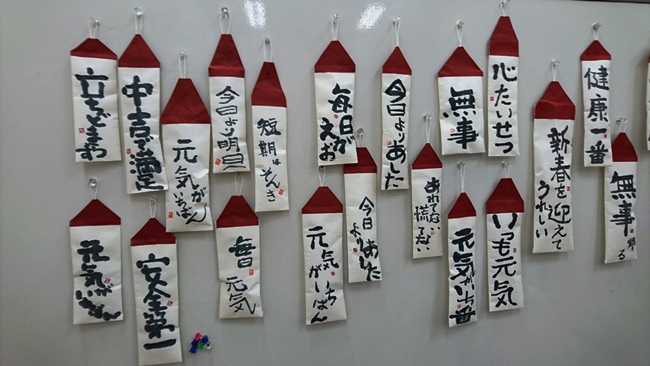 中吉で満足
元気が
いちばん
今日より明日
短期は
そんき
毎日が
えがお
今日より
あした
無事
心たいせつ
新春を迎えて
うれしい
健康一番
元気が
いちばん
安全第一
毎日
元気
元気
がいちばん
今日
より あした
あわてない
慌てない
元気がいち番
いつも元気
無事
帰る